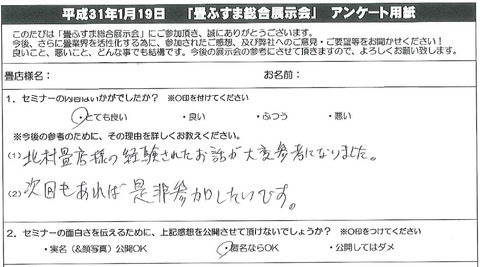 平成31年1月19日 「畳ふすま総合展示会」 アンケート用紙
このたびは「畳ふすま総合展示会」にご参加頂き、誠にありがとうございます。
今後、さらに畳業界を活性化する為に、参加されたご感想、及び弊社へのご意見・ご要望等をお聞かせください!
良いこと、悪いこと、どんな事でも結構です。今後の展示会の参考にさせて頂きますので、よろしくお願い致します。
畳店様名: お名前:
1.セミナーの内容はいかがでしたか? ※○印を付けてください
・とても良い ・良い ・ふつう ・悪い
※今後の参考のために、その理由を詳しくお教えください。
(1) 北村畳店様の経験されたお話が大変参考になりました。
(2) 次回もあれば是非参加したいです。
2.セミナーの面白さを伝えるために、上記感想を公開させて頂けないでしょうか? ※○印をつけてください
・実名(&顔写真)公開OK ・匿名ならOK ・公開してはダメ